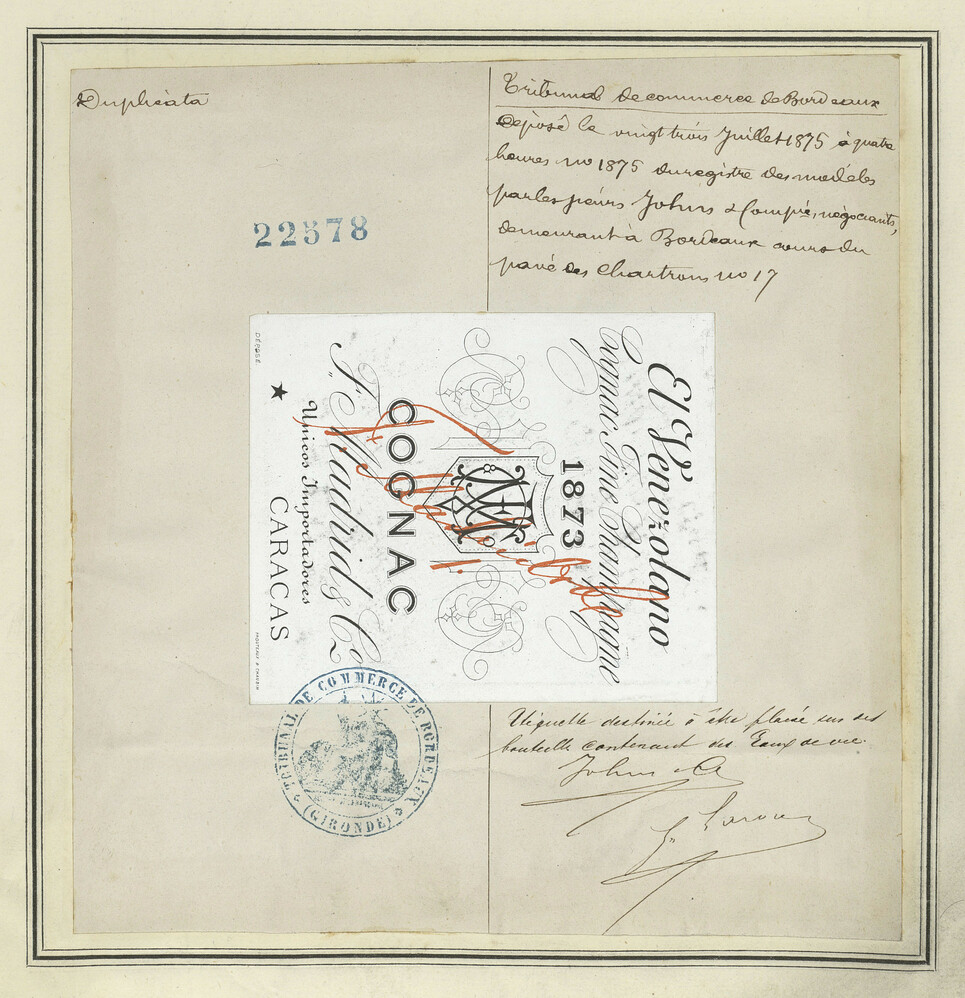 Duplicata
22578
Tribunal de commerce de Bordeaux
déposé le vingt trois Juillet 1875 à quatre
heures no 1875 du registre des modèles
par les sieurs Johns & Compie, négociants,
demeurant à Bordeaux cours du
pavé des Chartrons no 17
El Venezolano
Cognac Fine Champagne
1873
COGNAC
F. Madrid & Co
Unicos Importadores
CARACAS
DÉPOSÉ
Etiquette destinée à être placée sur des
bouteille contenant des Eaux de vie.
Johns & Co
TRIBUNAL DE COMMERCE DE BORDEAUX
(GIRONDE)